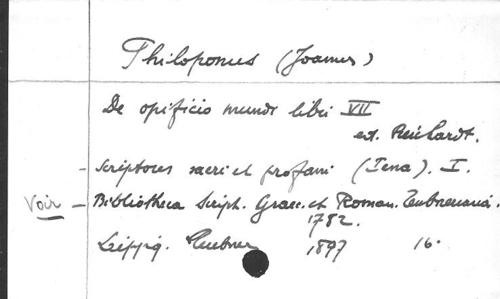 Philoponus (Joannes)
De opificio mundi libri VII
ed. Reichardt.
- Scriptores sacri et profani (Jena). I.
Voir - Bibliotheca Script. Graec. et Roman. Teubneriana.
1782.
Leipzig. Teubner 1897 16.